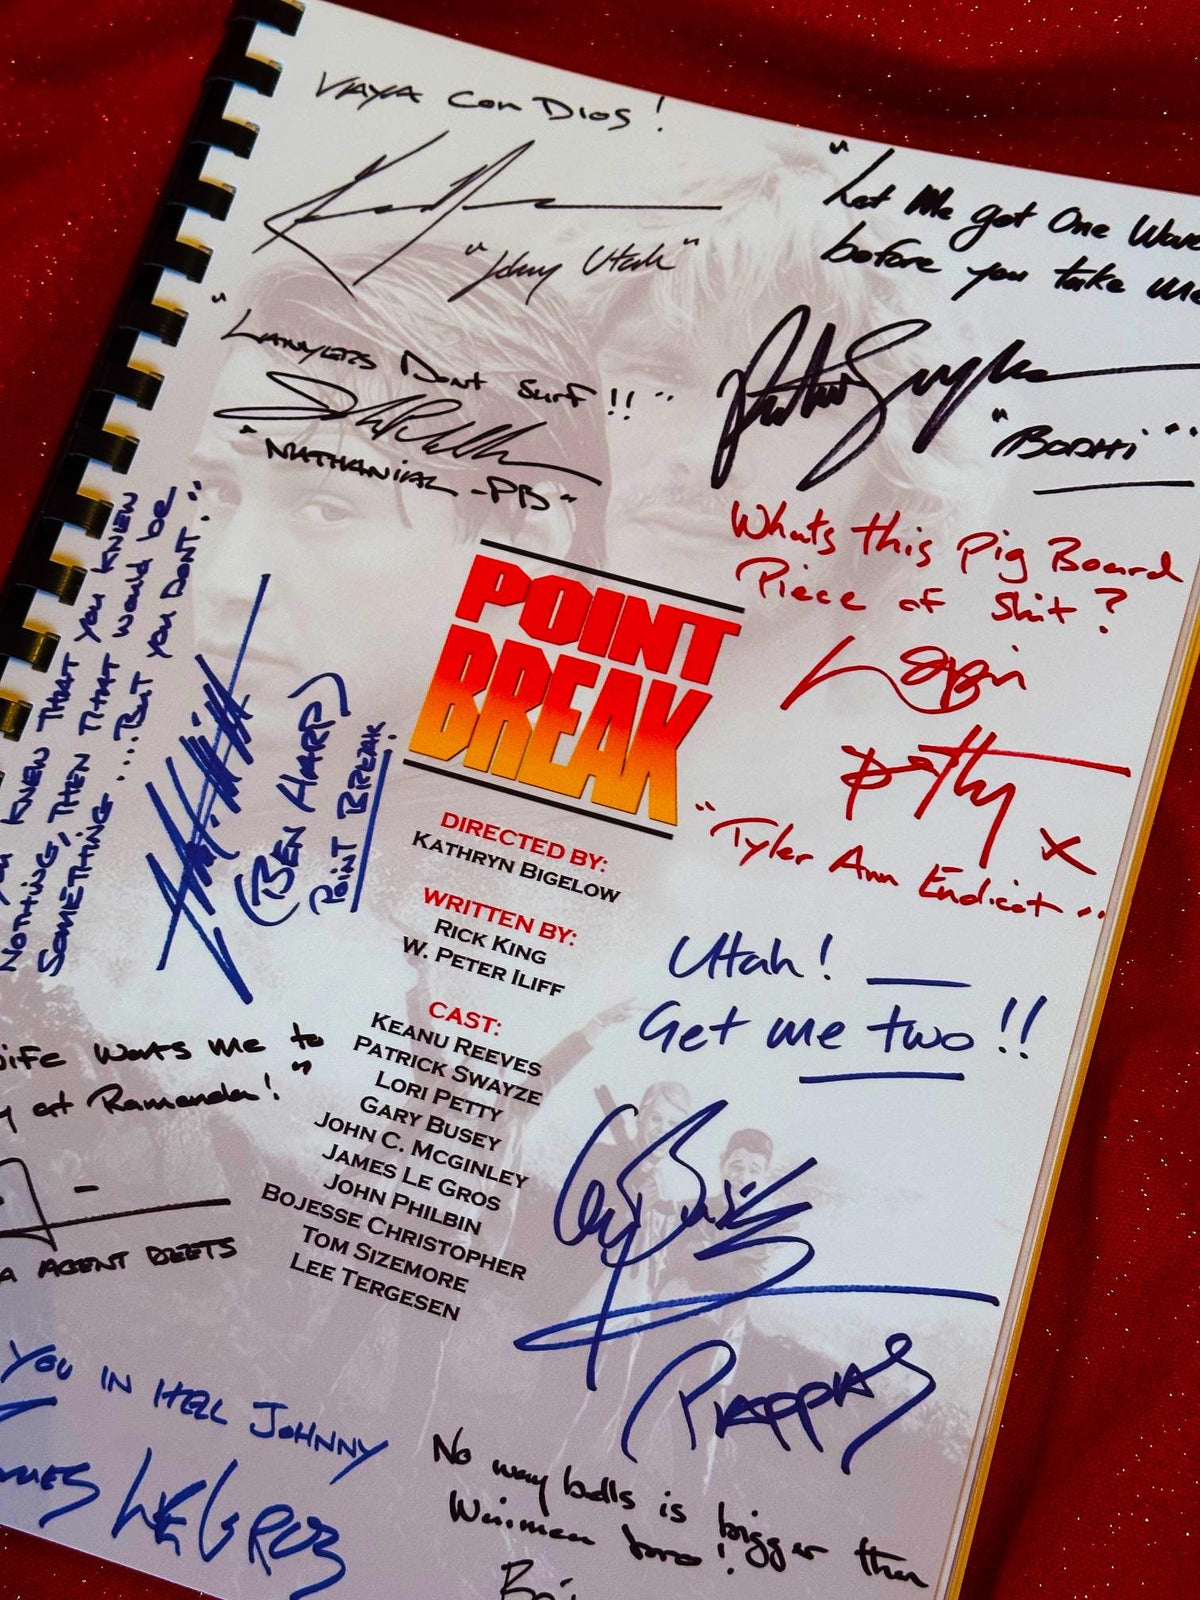 VAYA Con Dios!
"Johny Utah"
"Let Me get One Wave
before you take me
Patrick Swayze
"BODHI"
"LAWYERS Dont Surf!!"
"NATHANIAL -PB"
Whats this Pig Board
Piece of Shit?
Lori
Petty x
"Tyler Ann Endicot"
KNEW THAT you KNEW
NOTHING, THEN THAT would be
SOMETHING ....But you DON'T."
(BEN HARP)
POINT BREAK.
POINT
BREAK
DIRECTED BY:
KATHRYN BIGELOW
WRITTEN BY:
RICK KING
W. PETER ILIFF
CAST:
KEANU REEVES
PATRICK SWAYZE
LORI PETTY
GARY BUSEY
JOHN C. MCGINLEY
JAMES LE GROS
JOHN PHILBIN
BOJESSE CHRISTOPHER
TOM SIZEMORE
LEE TERGESEN
Utah!
Get me two!!
PAPPAS
wife wants me to
at Ramanda!"
AGENT DEETS
YOU IN HELL JOHNNY
LEGROS
No way balls is bigger then
bro!